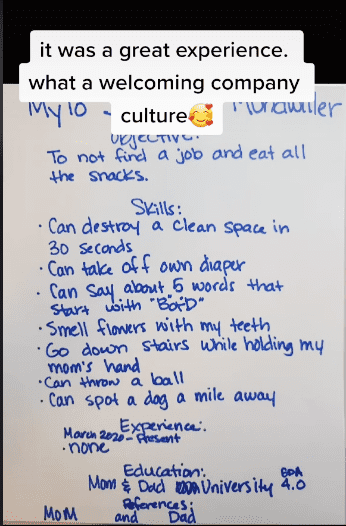 it was a great experience.
what a welcoming company
culture🥰
Mylo
Objective:
To not find a job and eat all
the snacks.
Skills:
· Can destroy a clean space in
30 seconds
· Can take off own diaper
· Can say about 5 words that
start with "B or D"
· Smell flowers with my teeth
· Go down stairs while holding my
mom's hand
· Can throw a ball
· Can spot a dog a mile away
Experience:
March 2020 - Present
· none
Education:
Mom & Dad University 4.0
References:
Mom and Dad